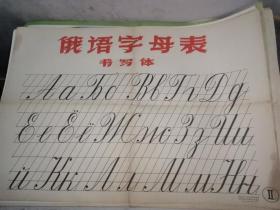 俄语字母表
书写体
Аа Бб Вв Гг Дд
Ее Ёё Жж Зз Ии
й Кк Лл Мм Нн
II